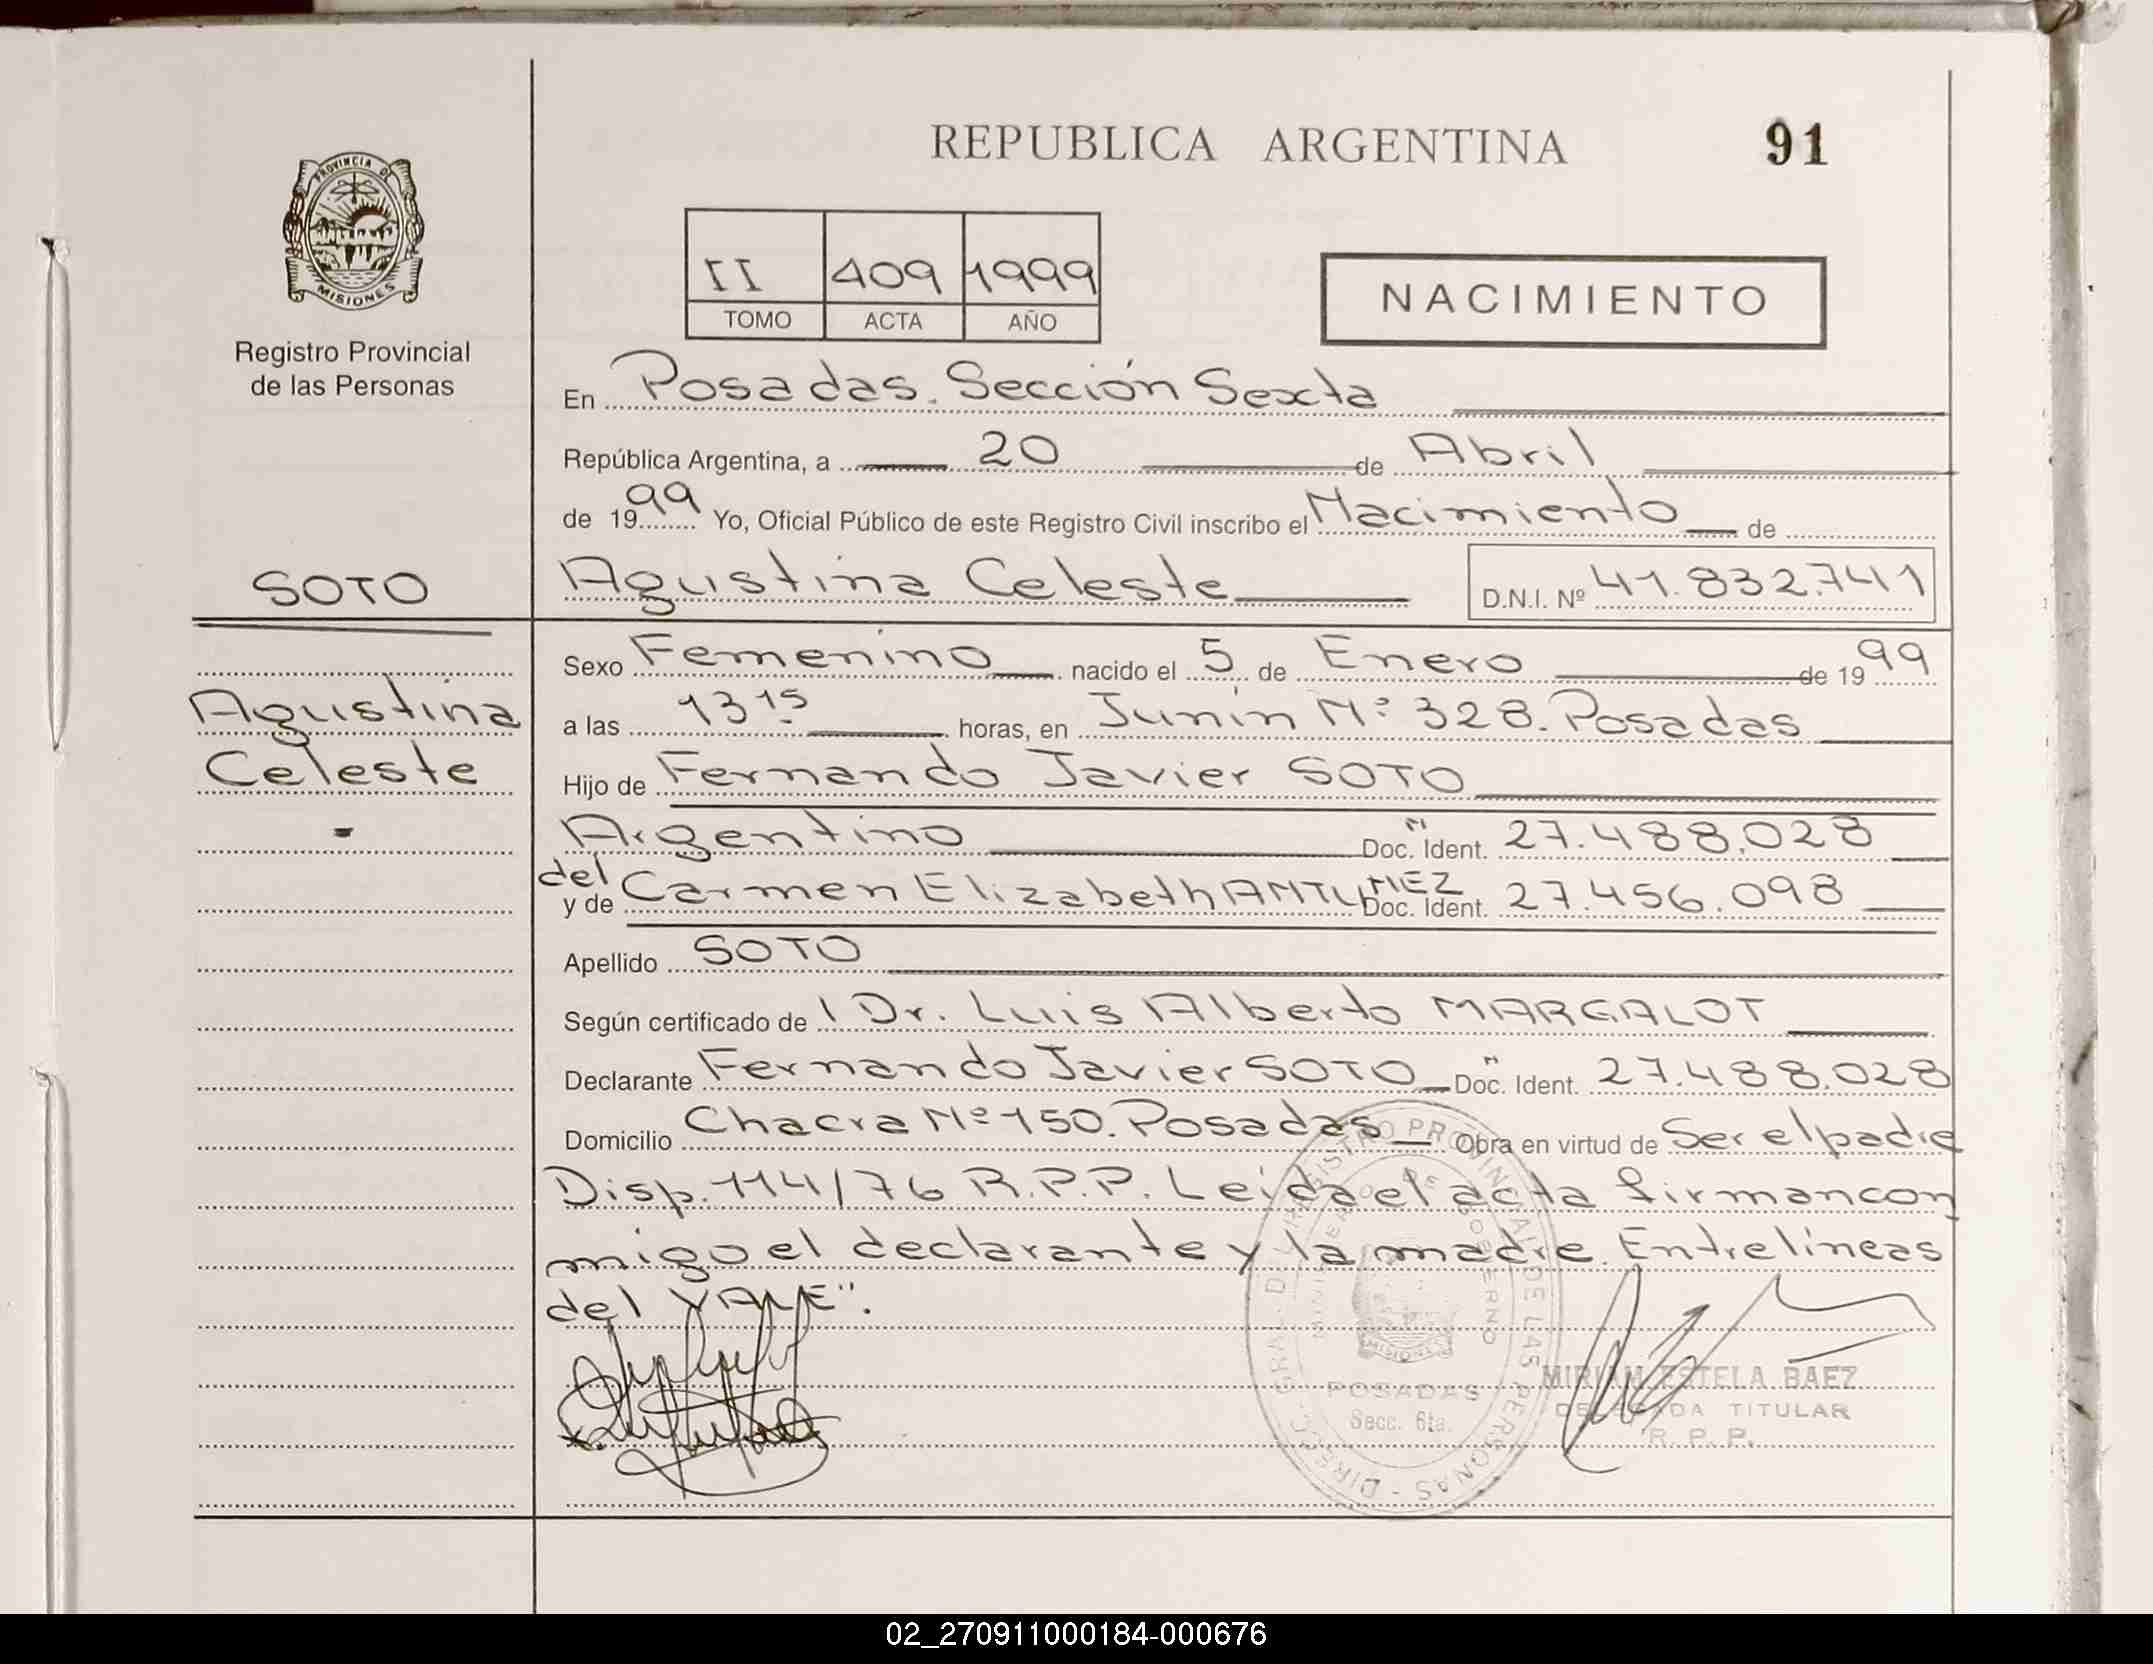 REPUBLICA ARGENTINA
91
PROVINCIA DE
MISIONES
Registro Provincial
de las Personas
II 409 1999
TOMO ACTA AÑO
NACIMIENTO
En Posadas. Sección Sexta
República Argentina, a 20 de Abril
de 1999 Yo, Oficial Público de este Registro Civil inscribo el Nacimiento de
SOTO
Agustina Celeste D.N.I. Nº 41.832.741
Sexo Femenino nacido el 5 de Enero de 1999
Agustina
a las 13 15 horas, en Junín Nº 328. Posadas
Celeste
Hijo de Fernando Javier SOTO
Argentino Doc. Ident. 27.488.028
del
y de Carmen Elizabeth ANTUNEZ Doc. Ident. 27.456.098
Apellido SOTO
Según certificado de l Dr. Luis Alberto MARGALOT
Declarante Fernando Javier SOTO Doc. Ident. 27.488.028
Domicilio Chacra Nº 150. Posadas Obra en virtud de Ser el padre
Disp. 114/76 R.P.P. Leída el acta firman con
migo el declarante y la madre. Entrelíneas
del VALE".
REGISTRO PROVINCIAL DE LAS PERSONAS
MINISTERIO DE GOBIERNO
MISIONES
POSADAS
Secc. 6ta.
MIRIAM ESTELA BAEZ
DELEGADA TITULAR
R. P. P.
02_270911000184-000676